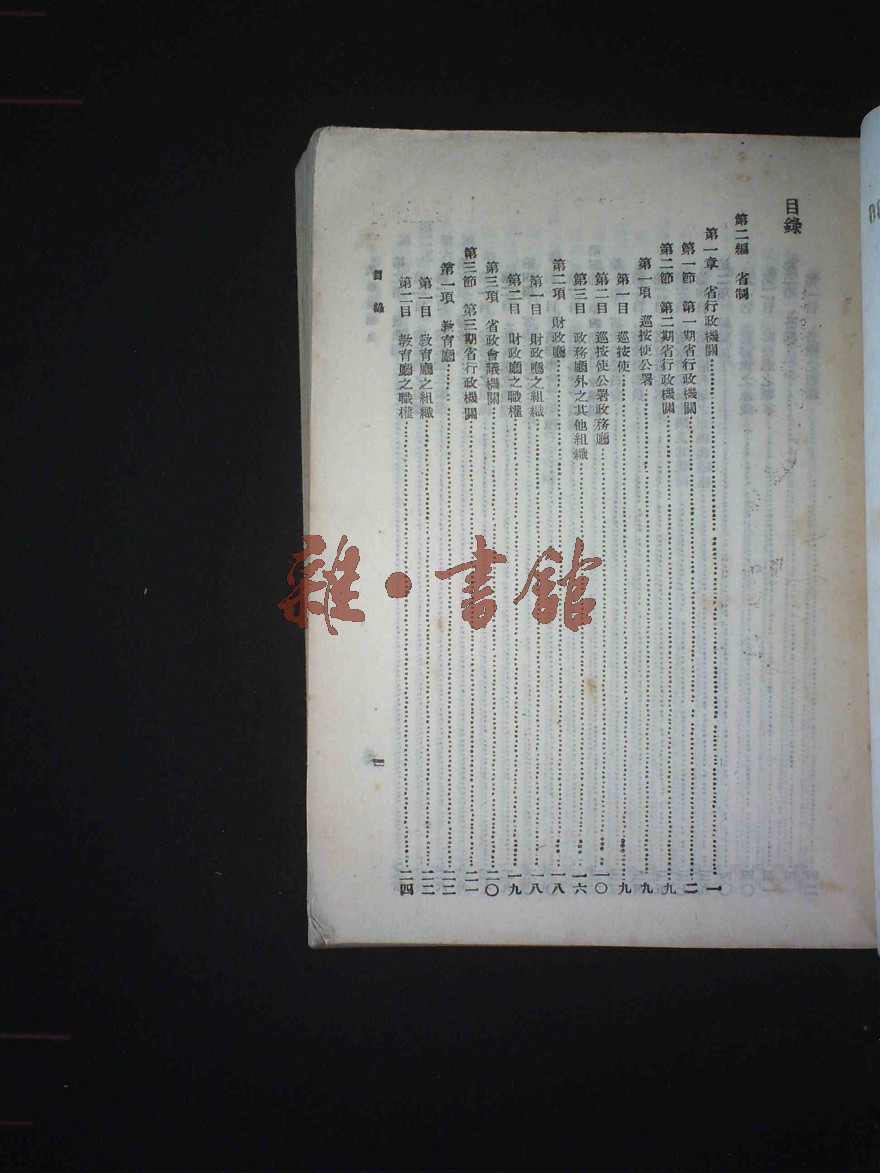 目錄
第二編　省制
第一章　省行政機關…………一
第一節　第一期省行政機關…………二
第二節　第二期省行政機關…………九
第一項　巡按使公署…………九
第一目　巡按使…………九
第二目　巡按使公署政務廳…………一〇
第三目　政務廳外之其他組織…………一六
第二項　財政廳…………一八
第一目　財政廳之組織…………一八
第二目　財政廳之職權…………一九
第三項　省政會議機關…………二〇
第三節　第三期省行政機關…………二一
第一項　教育廳…………二二
第一目　教育廳之組織…………二二
第二目　教育廳之職權…………二四
目　錄
一
雜·書館